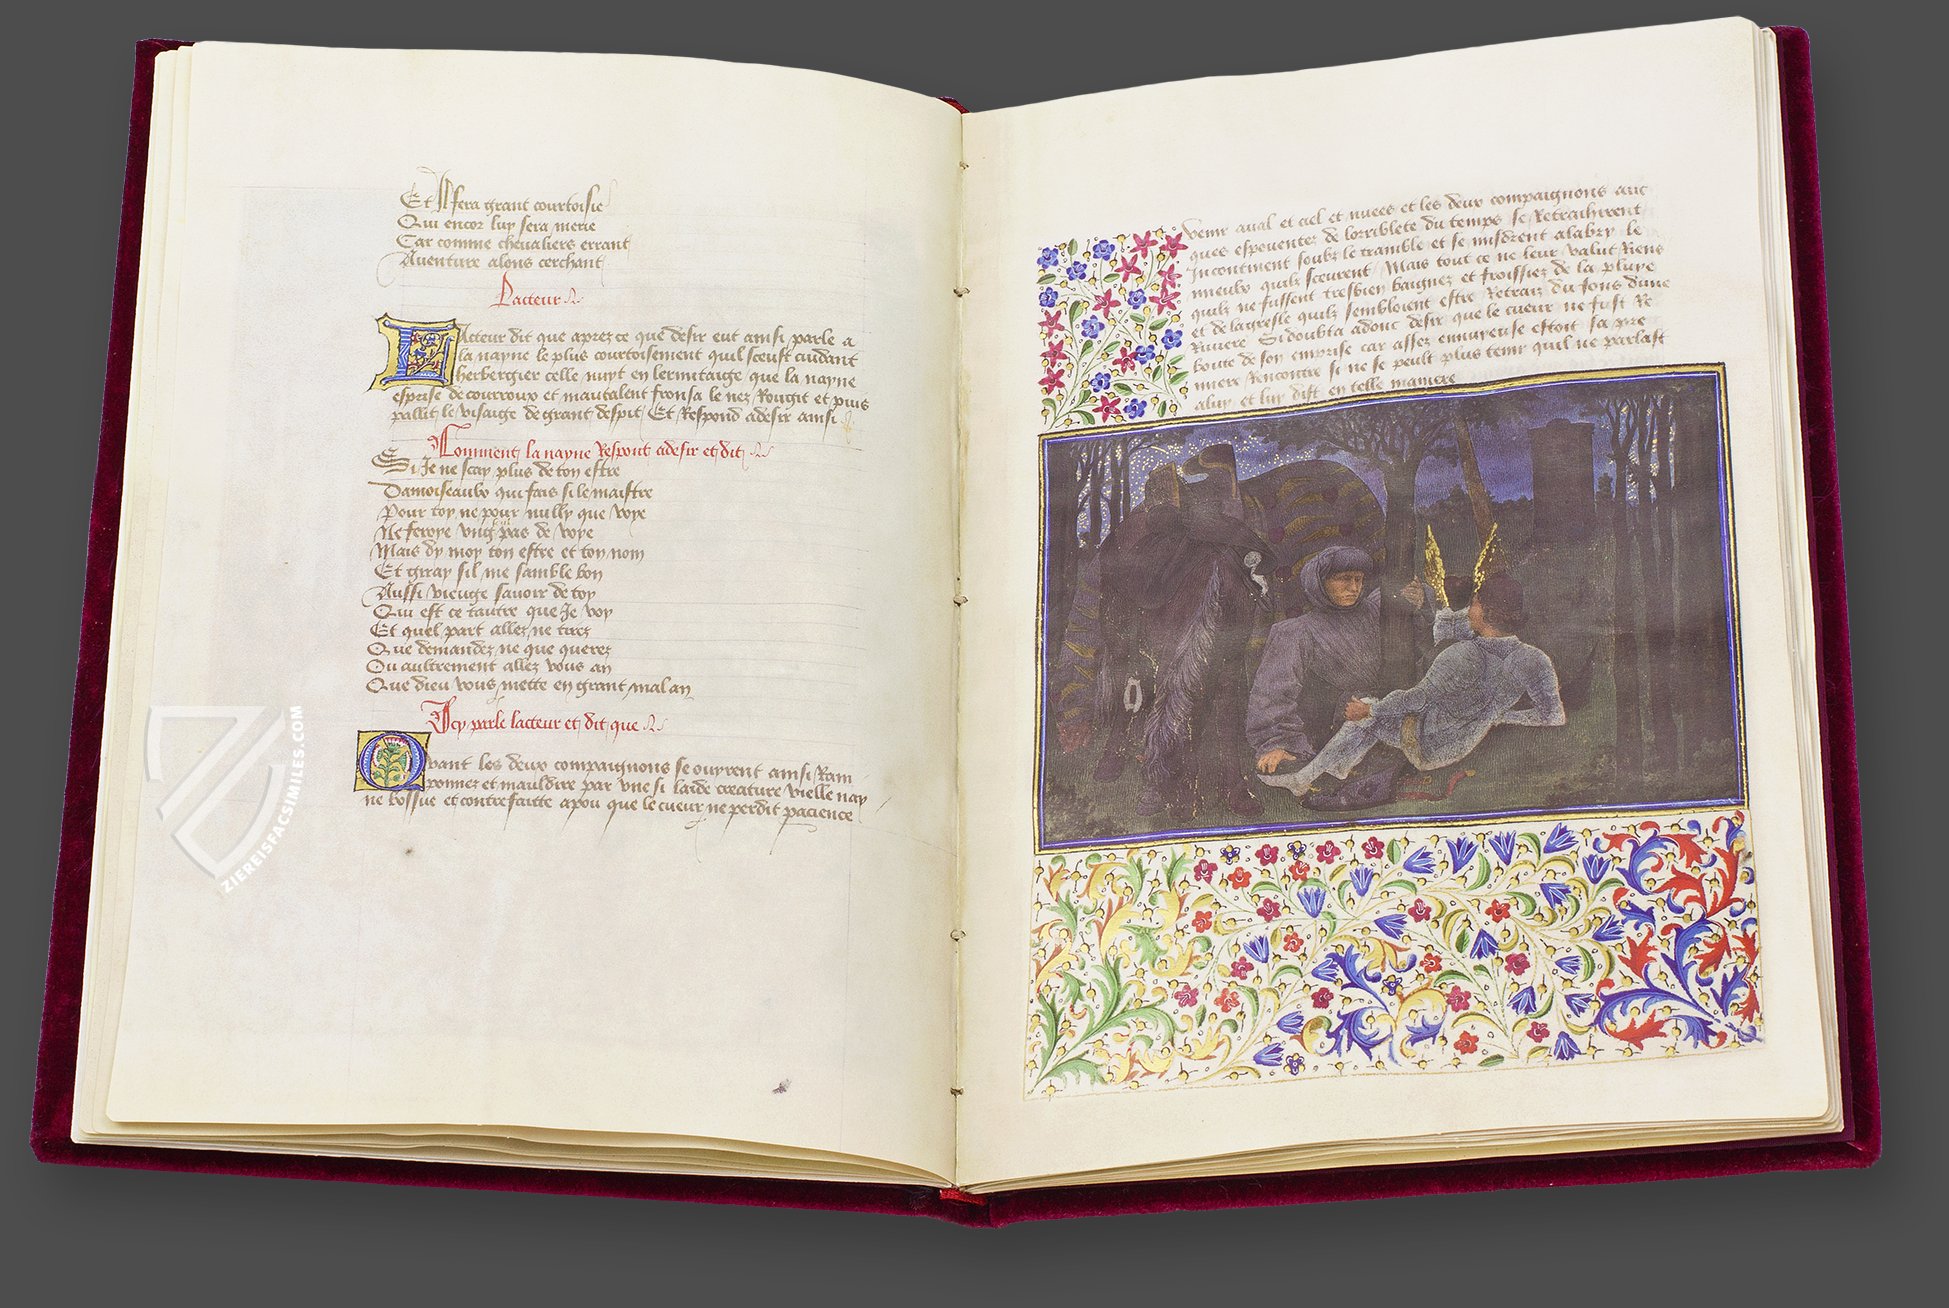 Et si fera grant courtoisie
Qui encor luy sera merie
Car comme chevaliers errant
Aventure alons cerchant
Lacteur
Lacteur dit que aprez ce que desir eut ainsi parle a
la nayne le plus courtoisement quil sceust cuidant
herbergier celle nuyt en lermitaige que la nayne
esprise de courroux et mautalent fronsa le nez Rougit et puis
pallit le visaige de grant despit Et Respond a desir ainsi
Comment la nayne Respont a desir et dit
Si Je ne scay plus de ton estre
Damoiseaulx qui fais si le maistre
Pour toy ne pour nully que voye
Ne feroye ung seul pas de voye
Mais dy moy ton estre et ton nom
Et g'iray sil me samble bon
Aussi vieuge savoir de toy
Qui est ce lautre que Je voy
Et quel part allez ne tirez
Que demandez ne que querez
Ou aultrement allez vous an
Que dieu vous mette en grant mal an
Icy parle lacteur et dit que
Quant les deux compaignons se ouyrent ainsi Ram
ponnez et mauldire par une si laide creature vielle nay
ne bossue et contrefaitte a pou que le cueur ne perdit pacience
venir aval et ciel et nuees et les deux compaignons auc
ques espouentez de lorriblete du temps se Retrahirent
Incontinent soubz le tramble et se misdrent alabry le
mieulx quilz sceurent Mais tout ce ne leur valut Riens
quilz ne fussent tresbien baignez et froissiez de la pluye
et de la gresle quilz sembloient estre Retraiz du fons dune
Riviere Si doubta adonc desir que le cueur ne fust Re
boute de son emprise car assez ennuyeuse estoit sa pre
miere Rencontre si ne se peult plus tenir quil ne parlast
a luy et luy dist en telle maniere
ZIEREISFACSIMILES.COM